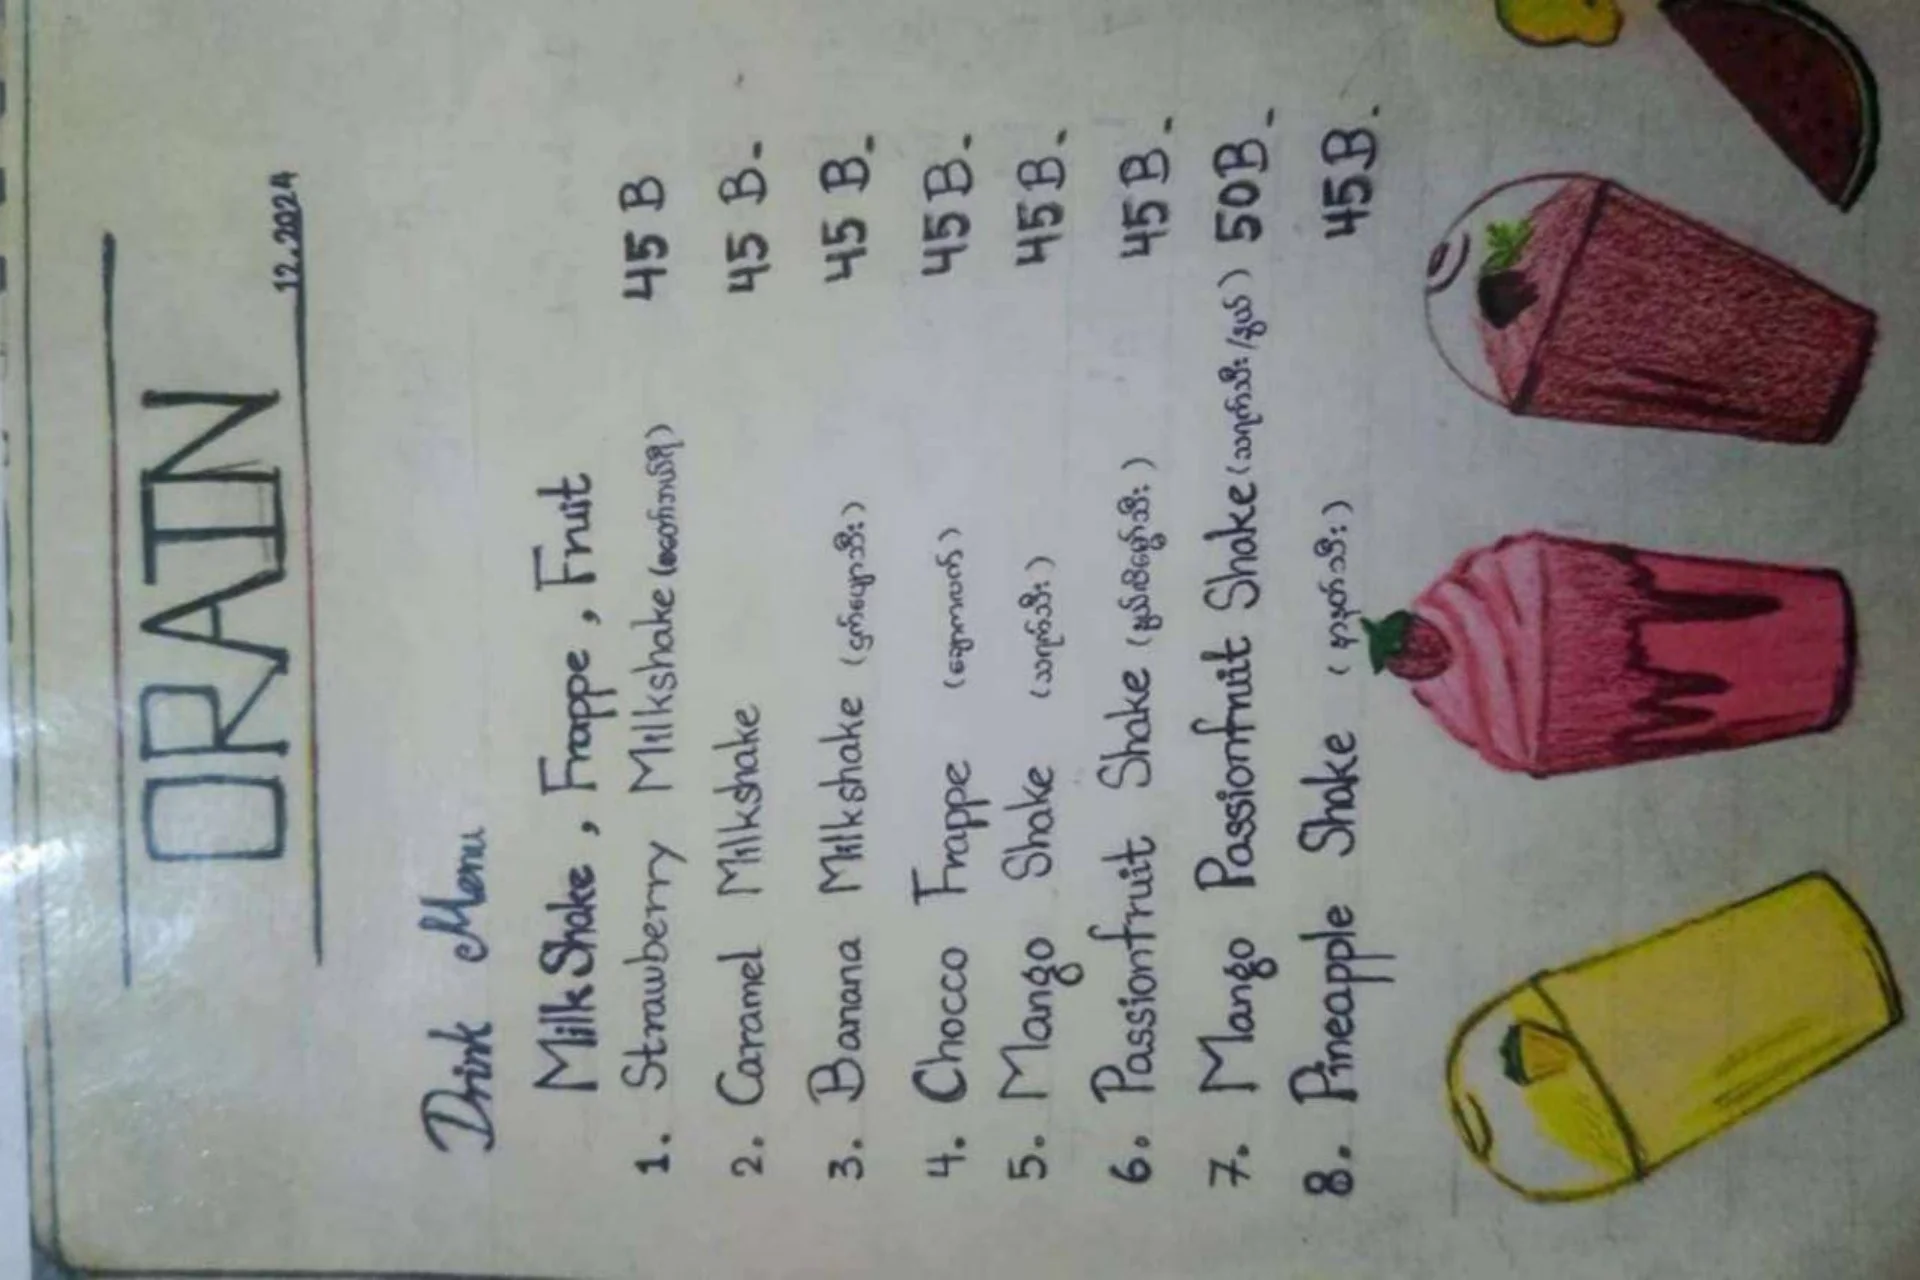 ORAIN
12.2024
Drink Menu
MilkShake, Frappe, Fruit
1. Strawberry Milkshake (စတော်ဘယ်ရီ) 45 B
2. Caramel Milkshake 45 B-
3. Banana Milkshake (ငှက်ပျောသီး) 45 B-
4. Chocco Frappe (ချောကလက်) 45 B-
5. Mango Shake (သရက်သီး) 45 B-
6. Passionfruit Shake 45 B-
7. Mango Passionfruit Shake (သရက်သီး/နွယ်) 50B-
8. Pineapple Shake (နာနတ်သီး) 45B.